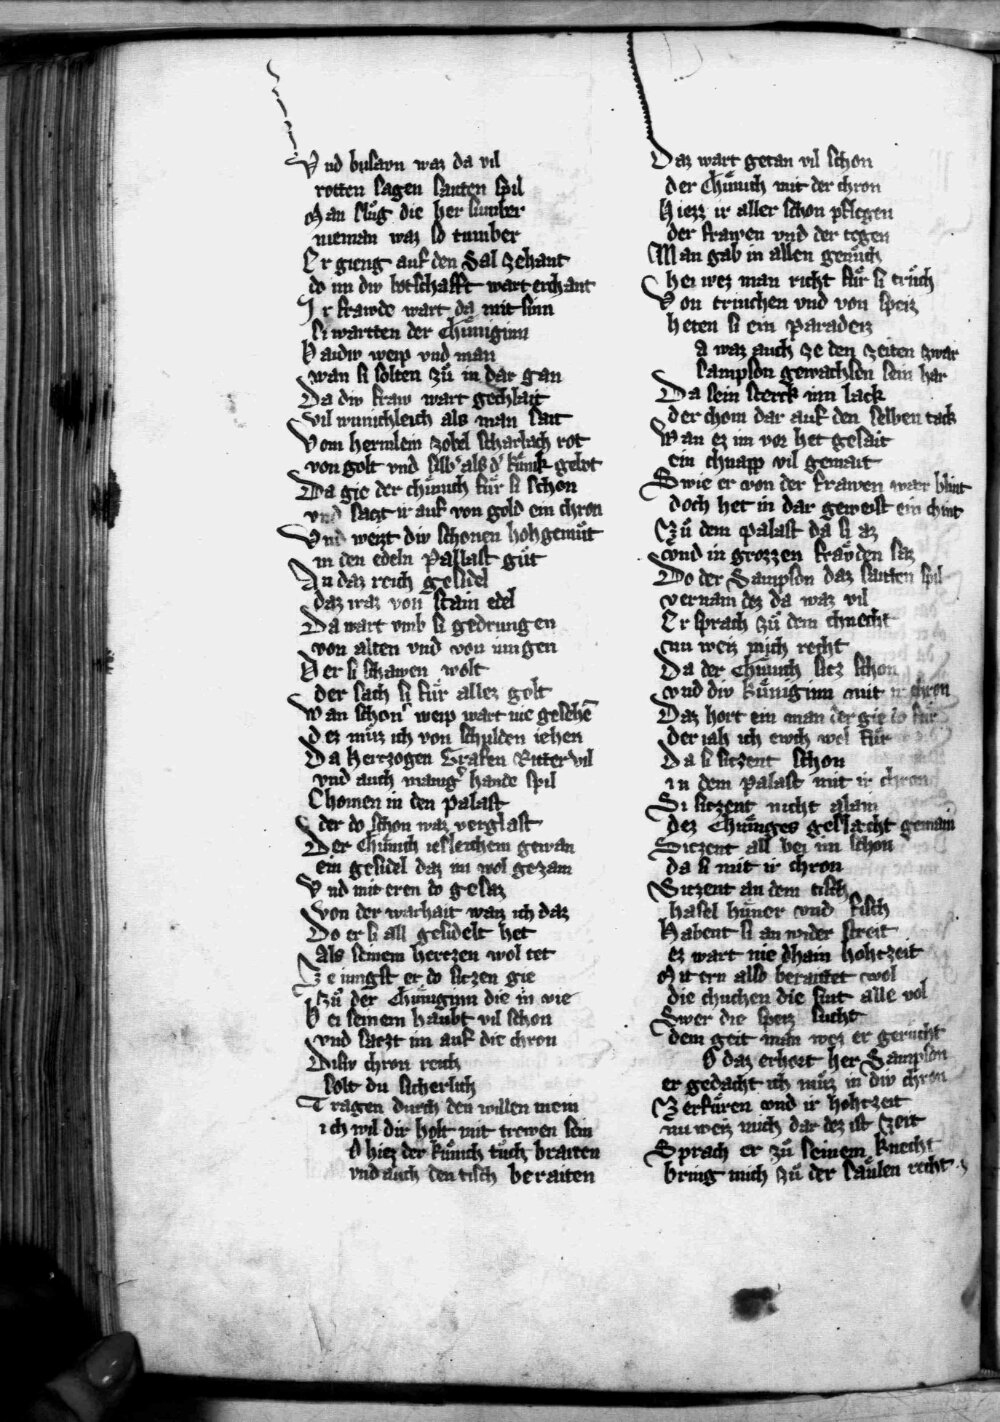 Vnd busavn waz da vil
rotten sagen santen spil
Man slůg die her sumber
nieman waz so tumber
Er gieng auf den Sal zehant
do im div botschafft wart erchant
Ir frawde wart da mit sinn
si wartten der Chüniginn
Baidiv weip vnd man
wan si solten zů in dar gan
Da div fraw wart gechlait
vil wunichleich als man sait
Vom hermlein zobel scharlach rot
von golt vnd silber als der künik gebot
Da gie der chünich für si schon
vnd saczt ir auf von gold ein chron
Vnd weizt div schonen hohgemüt
in den edeln Pallast güt
An daz reich gesidel
daz waz von stain edel
Da wart vmb si gedrungen
von alten vnd von iungen
Der si schawen wolt
der sach si für allez golt
Wan schoner weip wart nie gesehen
dez müz ich von schulden iehen
Da hertzogen Grafen Ritter vil
vnd auch maniger hande spil
Chomen in den palast
der do schon waz verglast
Der Chünich iesleichem gewan
ein gesidel daz im wol gezam
Vnd mit eren do gesaz
von der warhait waiz ich daz
Do er si all gesidelt het
als seinem hertzen wol tet
Ze iungst er do siczen gie
zů der Chüniginn die in vie
Bei seinem haubt vil schon
vnd saczt im auf die chron
Disiv chron reich
solt du sicherlich
Tragen durch den willen mein
ich wil dir holt mit trewen sein
O hiez der künich tüch braiten
vnd auch den tisch beraiten
Daz wart getan vil schon
der Chünich mit der chron
Hiezz ir aller schon pflegen
der frawen vnd der tegen
Man gab in allen genüch
hei wez man richt für si trüch
Von trinchen vnd von speiz
heten si ein paradeiz
a waz auch ze den zeiten zwar
sampson gewachsen sein har
Da sein sterck im lack
der chom dar auf den selben tack
Wan ez im vor het gesait
ein chnapp vil gemait
Swie er von der frawen war blint
doch het in dar geweist ein chint
Zů dem palast da si az
vnd in grozzen fravden saz
Do der Sampson daz santen spil
vernam dez da waz vil
Er sprach zů dem chnecht
nu weiz mich recht
Da der Chünich sitz schon
vnd div küniginn mit ir chron
Daz hort ein man der gie do für
der iah ich ewch wol für
Da si siczent schon
in dem palast mit ir chron
Si siczent nicht alain
dez Chüniges geslæcht gemain
Siczent all bei im schon
da si mit ir chron
Siczent an dem tisch
hasel hüner vnd fisch
Habent si an wider streit
ez wart nie dhain hohtzeit
Mit ern also beraitet wol
die chuchen die sint alle vol
Swer die speiz sucht
dem geit man wez er gerucht
O daz erhort her Sampson
er gedacht ich müz in div chron
Zerfüren vnd ir hohtzeit
nu weiz mich dar dez ist zeit
Sprach er zů seinem knecht
bring mich zů der saülen recht